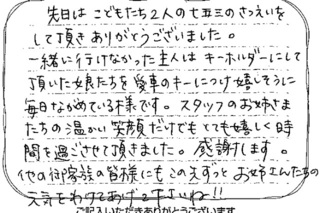 先日は こどもたち2人の七五三のさつえいを
して頂き ありがとうございました。
一緒に行けなかった主人は キーホルダーにして
頂いた娘たちを愛車のキーにつけ嬉しそうに
毎日ながめている様です。スタッフのお姉さま
たちの温かい笑顔だけでもとても嬉しく時
間を過ごさせて頂きました。感謝します。
他の御家族の皆様にも このえずっとお姉さんたちの
元気をわけてあげて下さいね!!
ご記入いただきありがとうございます